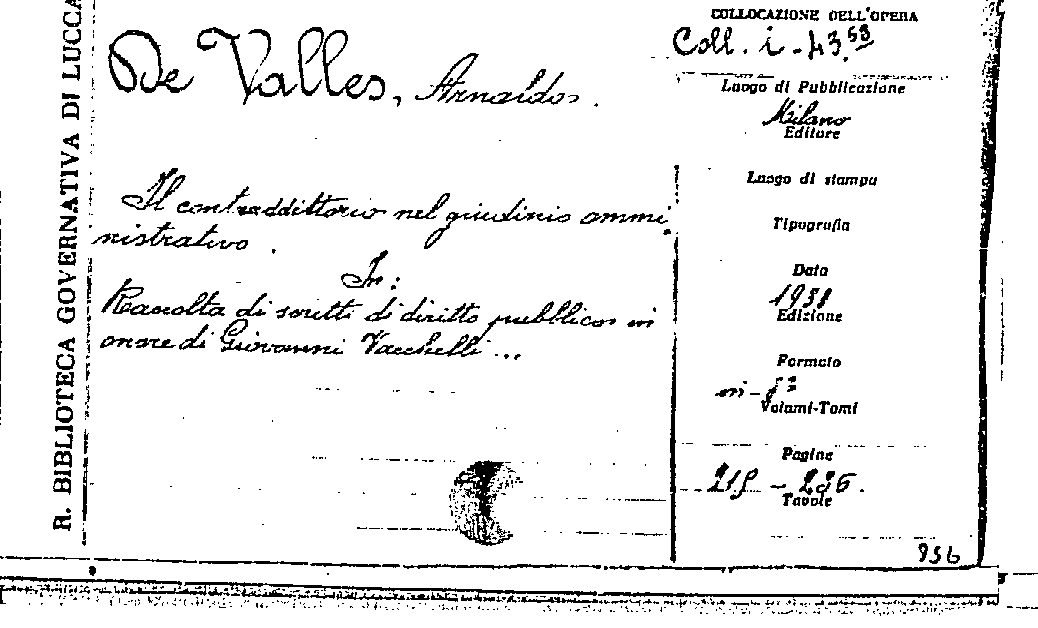 R. BIBLIOTECA GOVERNATIVA DI LUCCA
De Valles, Arnaldo.
Il contraddittorio nel giudizio ammi
nistrativo.
In:
Raccolta di scritti di diritto pubblico in
onore di Giovanni Vacchelli ...
COLLOCAZIONE DELL'OPERA
Coll. i - 43.
Luogo di Pubblicazione
Milano
Editore
Luogo di stampa
Tipografia
Data
1938
Edizione
Formato
in-8º
Volami-Tomi
Pagine
Tavole